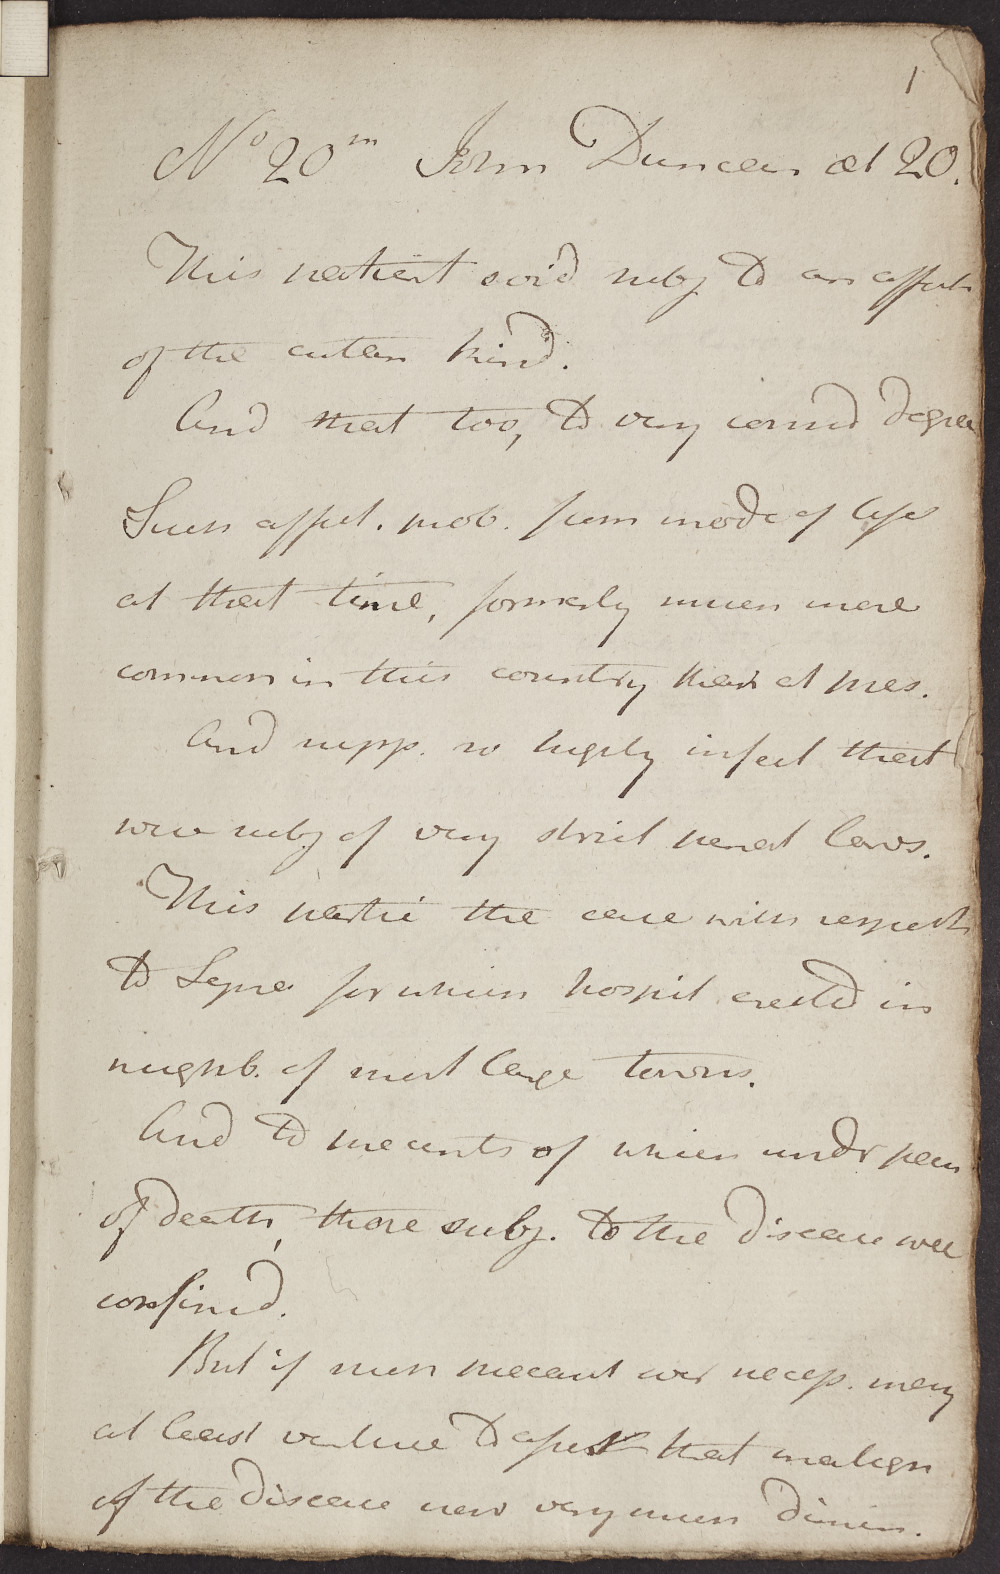 1
No 20m John Duncan æt 20.
This patient consid subj to an affect
of the cutan kind.
And that too, to very consid degree
Such affect. prob. from mode of life
at that time, formerly much more
common in this country than at pres.
And supp. so highly infect that
were subj of very strict penal laws.
This partic the case with respect
to Lepra for which hospit erected in
neighb. of most large towns.
And to precincts of which undr pain
of death, those subj. to the disease were
confined.
But if such precaut wer necess. may
at least venture to assert that malign
of the disease now very much dimin.